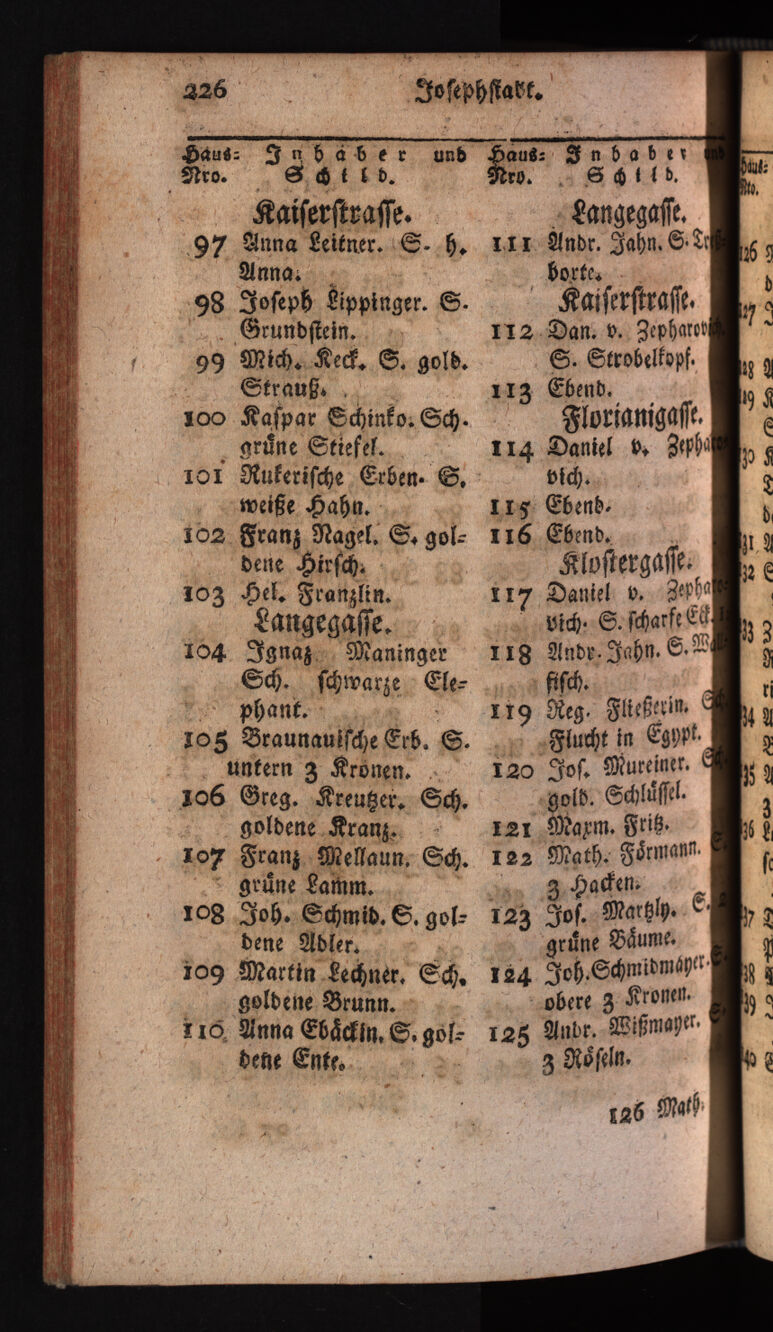 226 Josephstadt.
Haus= Inhaber und
Nro. Schild.
Kaiserstrasse.
97 Anna Leitner. S. h.
Anna.
98 Joseph Lippinger. S.
Grundstein.
99 Mich. Keck. S. gold.
Strauß.
100 Kaspar Schinko. Sch.
grüne Stiefel.
101 Rukerische Erben. S.
weiße Hahn.
102 Franz Nagel. S. gol=
dene Hirsch.
103 Hel. Franzlin.
Langegasse.
104 Ignaz Maninger
Sch. schwarze Ele=
phant.
105 Braunauische Erb. S.
untern 3 Kronen.
106 Greg. Kreutzer. Sch.
goldene Kranz.
107 Franz Mellaun. Sch.
grüne Lamm.
108 Joh. Schmid. S. gol=
dene Adler.
109 Martin Lechner. Sch.
goldene Brunn.
110 Anna Ebäckin. S. gol=
dene Ente.
Haus= Inhaber
Nro. Schild.
Langegasse.
111 Andr. Jahn. S.
borte.
Kaiserstrasse.
112 Dan. v.
S. Strobelkopf.
113 Ebend.
Florianigasse.
114 Daniel v.
vich.
115 Ebend.
116 Ebend.
Klostergasse.
117 Daniel v.
vich. S. scharfe Eck.
118 Andr. Jahn. S.
fisch.
119 Reg. Fließerin.
Flucht in Egypt.
120 Jos. Mureiner.
gold. Schlüssel.
121 Maxm. Fritz.
122 Math. Förmann.
3 Hacken.
123 Jos. Martzly. S.
grüne Bäume.
124 Joh. Schmidmayer.
obere 3 Kronen.
125 Andr. Wißmayer.
3 Röseln.
126 Math.